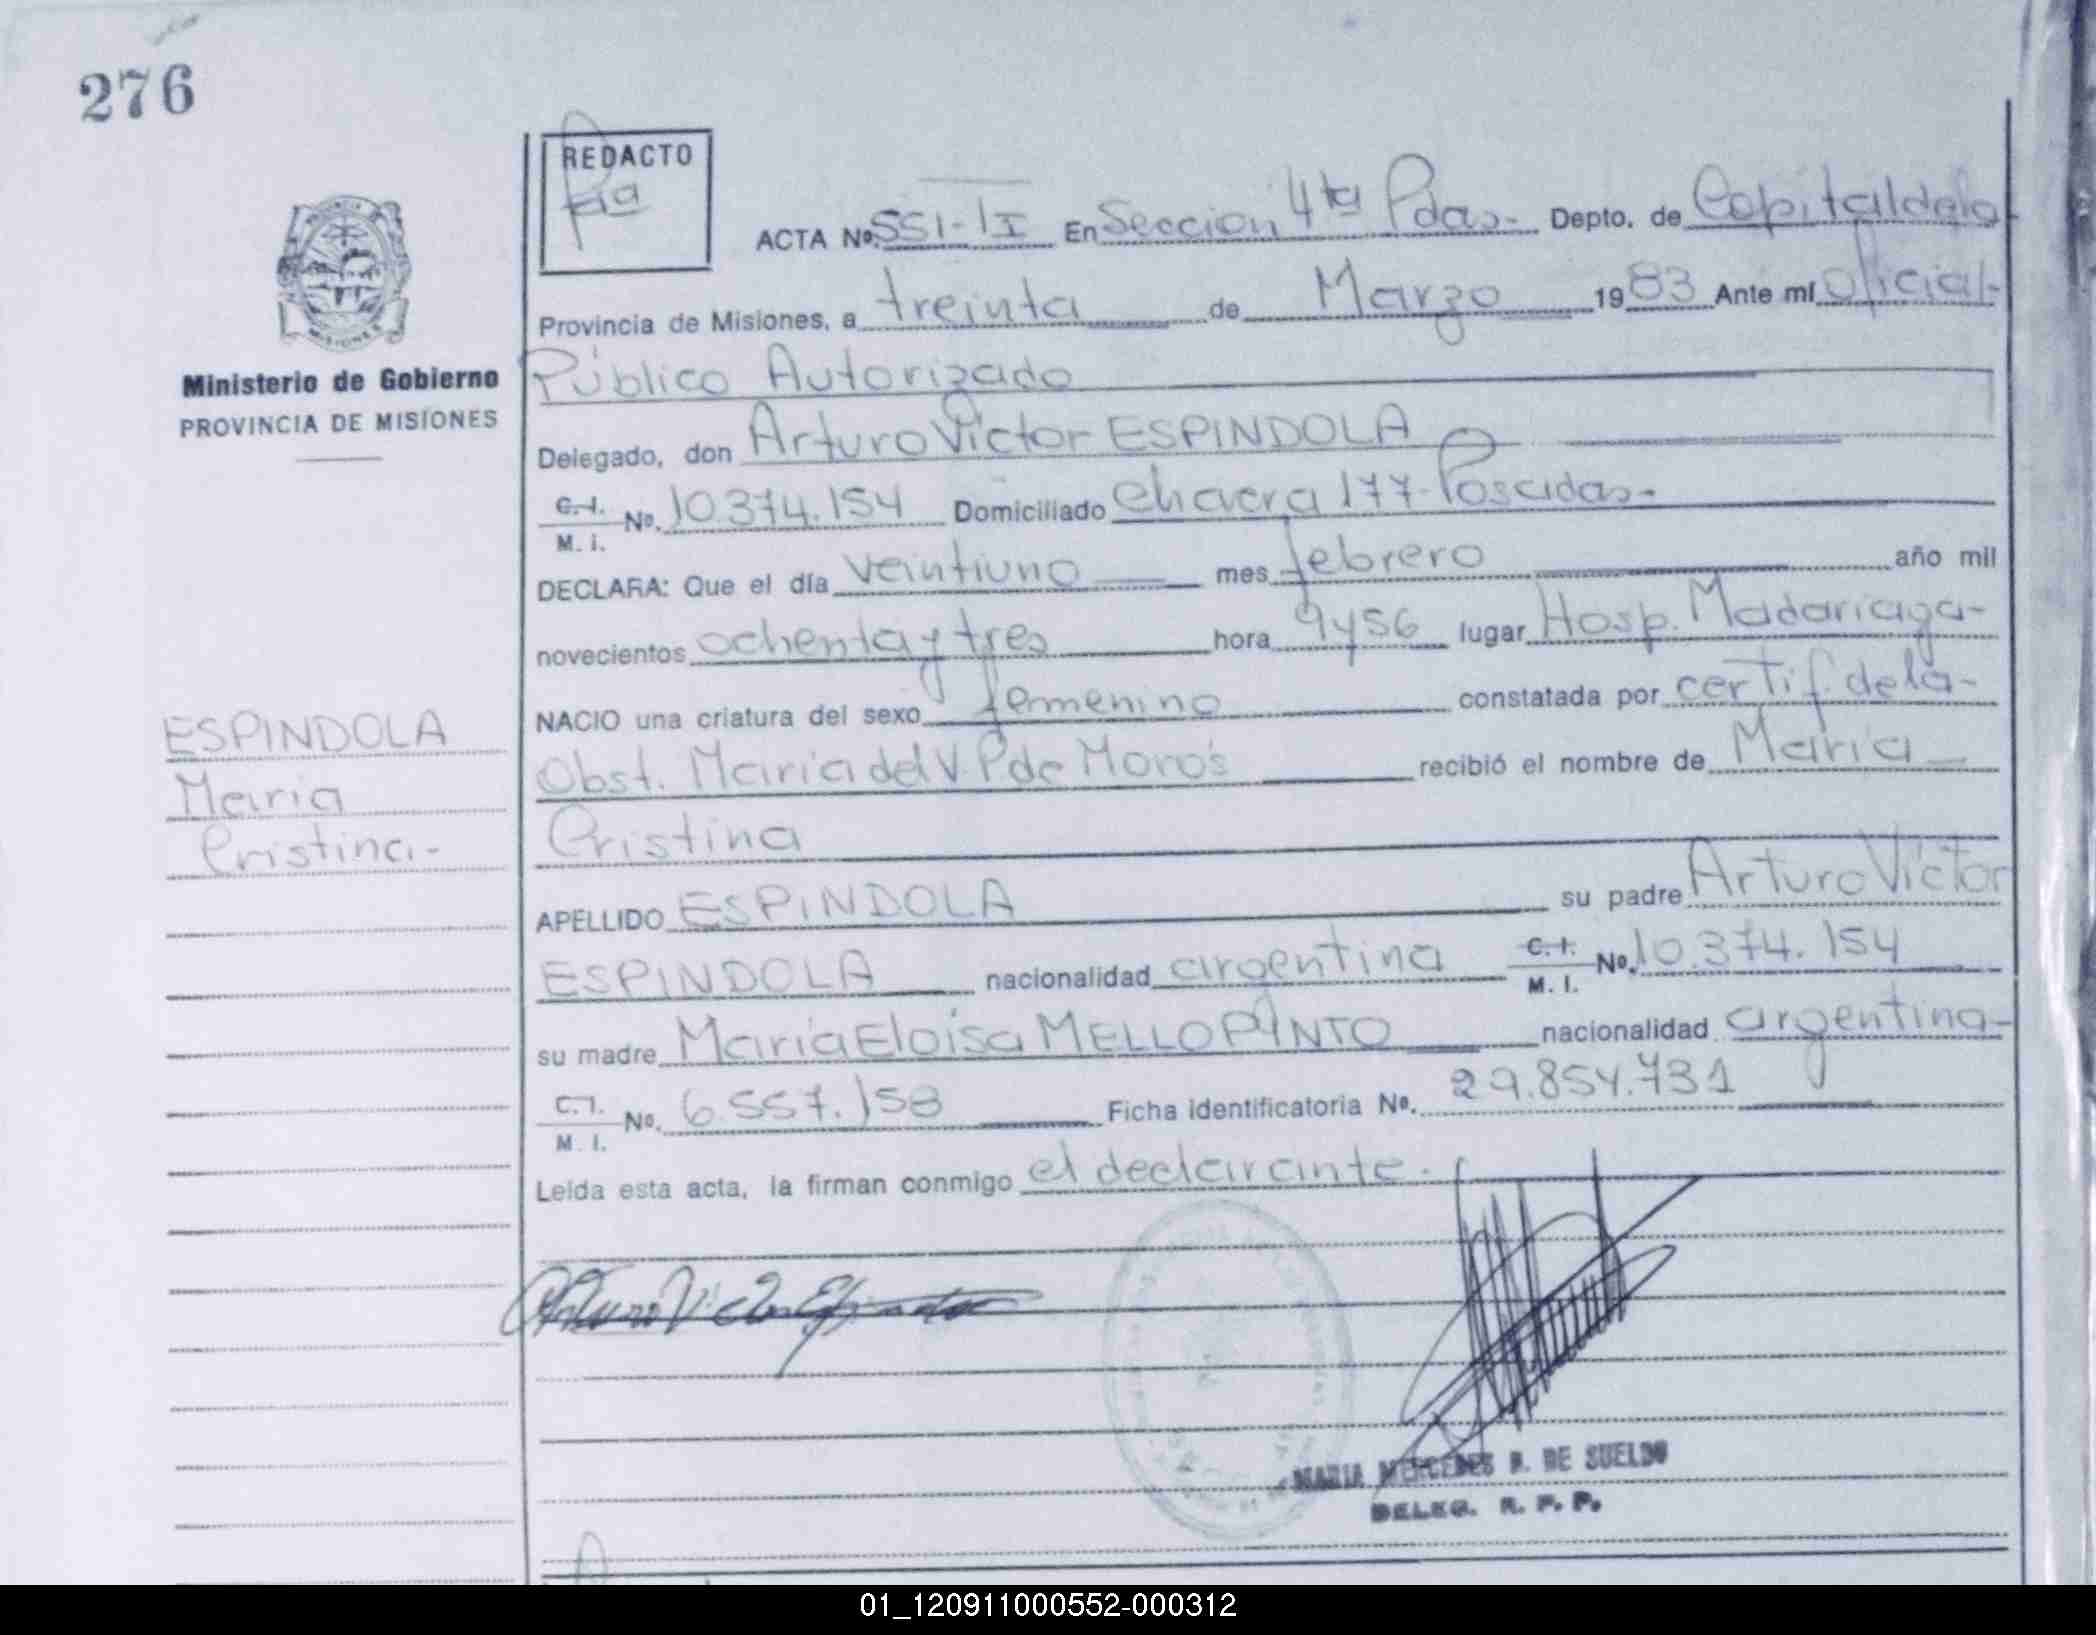 276
REDACTO
Pia
ACTA Nº. 551-II En Seccion 4ta Pdas- Depto. de Capital de la
Provincia de Misiones, a treinta de Marzo 1983 Ante mí Oficial-
Ministerio de Gobierno
PROVINCIA DE MISIONES
Público Autorizado
Delegado, don Arturo Victor ESPINDOLA
C.I. M.I. Nº. 10.374.154 Domiciliado Chacra 177-Posadas-
DECLARA: Que el día veintiuno mes febrero año mil
novecientos ochenta y tres hora 9y56 lugar Hosp. Madariaga-
NACIO una criatura del sexo femenino constatada por certif. de la-
ESPINDOLA
Maria
Cristina-
Obst. Maria del V. P de Moros recibió el nombre de Maria
Cristina
APELLIDO ESPINDOLA su padre Arturo Victor
ESPINDOLA nacionalidad argentina C.I. M.I. Nº. 10.374.154
su madre Maria Eloisa MELLO PINTO nacionalidad argentina-
C.I. M.I. Nº. 6.557.158 Ficha identificatoria Nº. 29.854.731
Leída esta acta, la firman conmigo el declarante.
Arturo Victor Espindola
MARIA MERCEDES P. DE SUELDO
DELEG. R. P. P.
01_120911000552-000312